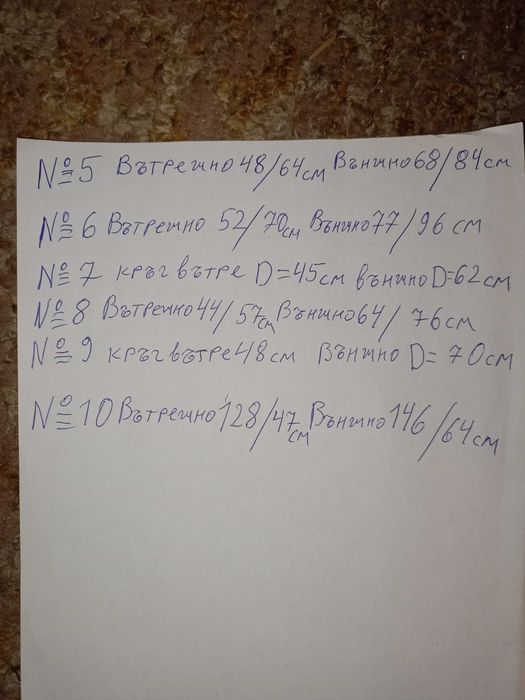 №5 Вътрешно 48/64см Външно 68/84см
№6 Вътрешно 52/70см Външно 77/96 см
№7 кръг вътре D=45см външно D=62см
№8 Вътрешно 44/57см Външно 64/76см
№9 кръг вътре 48см Външно D= 70см
№10 Вътрешно 128/47см Външно 146/64см